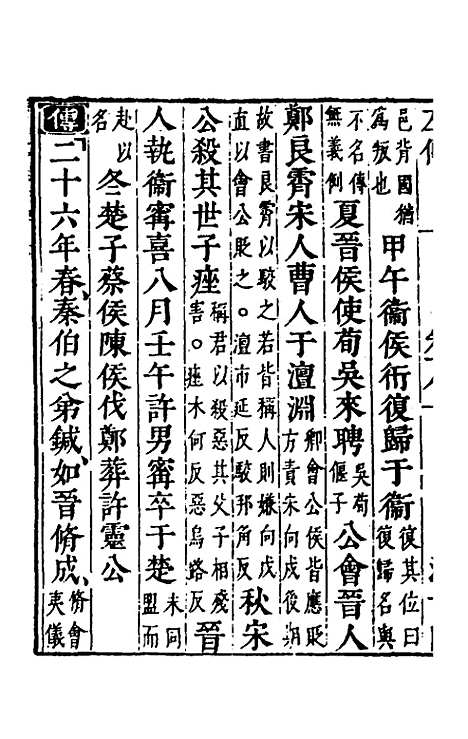 邑背國猶爲叛也甲午衞侯衎復歸于衞復其位曰復歸名與
不名傳無義例夏晉侯使荀吳來聘吳荀偃子公會晉人
鄭良霄宋人曹人于澶淵卿會公侯皆應貶方責宋向戌後期
故書良霄以駮之若皆稱人則嫌向戌直以會公貶之。澶市延反駮邦角反秋宋
公殺其世子痤稱君以殺惡其父子相殘害。痤木何反惡烏路反晉
人執衞寗喜八月壬午許男寗卒于楚未同盟而
赴以名冬楚子蔡侯陳侯伐鄭葬許靈公
傳二十六年春、秦伯之弟鍼、如晉脩成、脩會夷儀